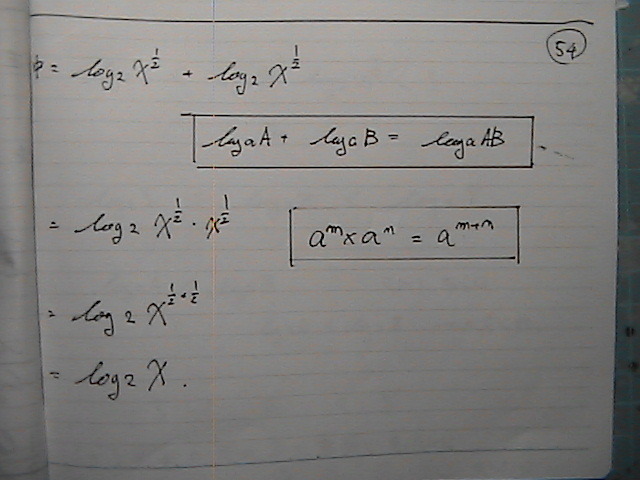 54
φ = log₂ x^½ + log₂ x^½
logₐA + logₐB = logₐAB
= log₂ x^½ · x^½
aᵐ × aⁿ = aᵐ⁺ⁿ
= log₂ x^(½+½)
= log₂ x.